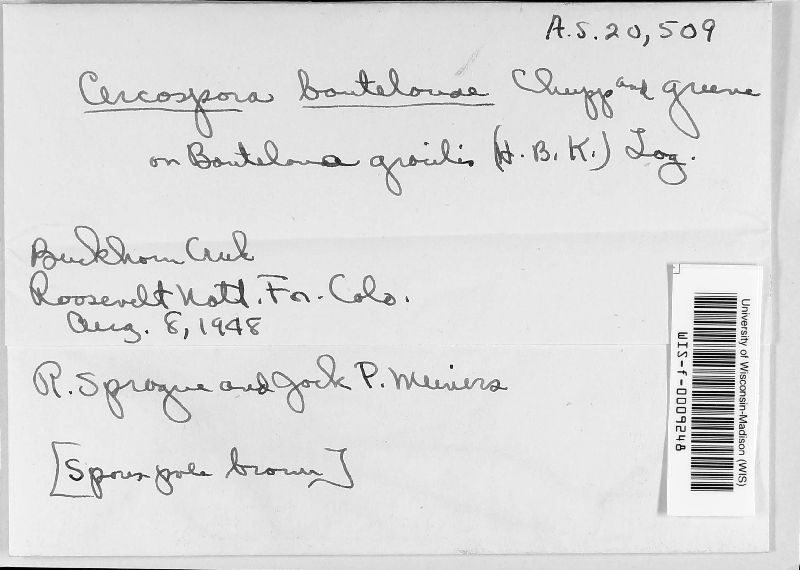 A.S. 20,509
Cercospora boutelouae Chupp and Greene
on Bouteloua gracilis (H.B.K.) Lag.
Buckhorn Creek
Roosevelt Natl. For. Colo.
Aug. 8, 1948
R. Sprague and Jack P. Meiners
[Spores pale brown]
University of Wisconsin-Madison (WIS)
WIS-f-0009248